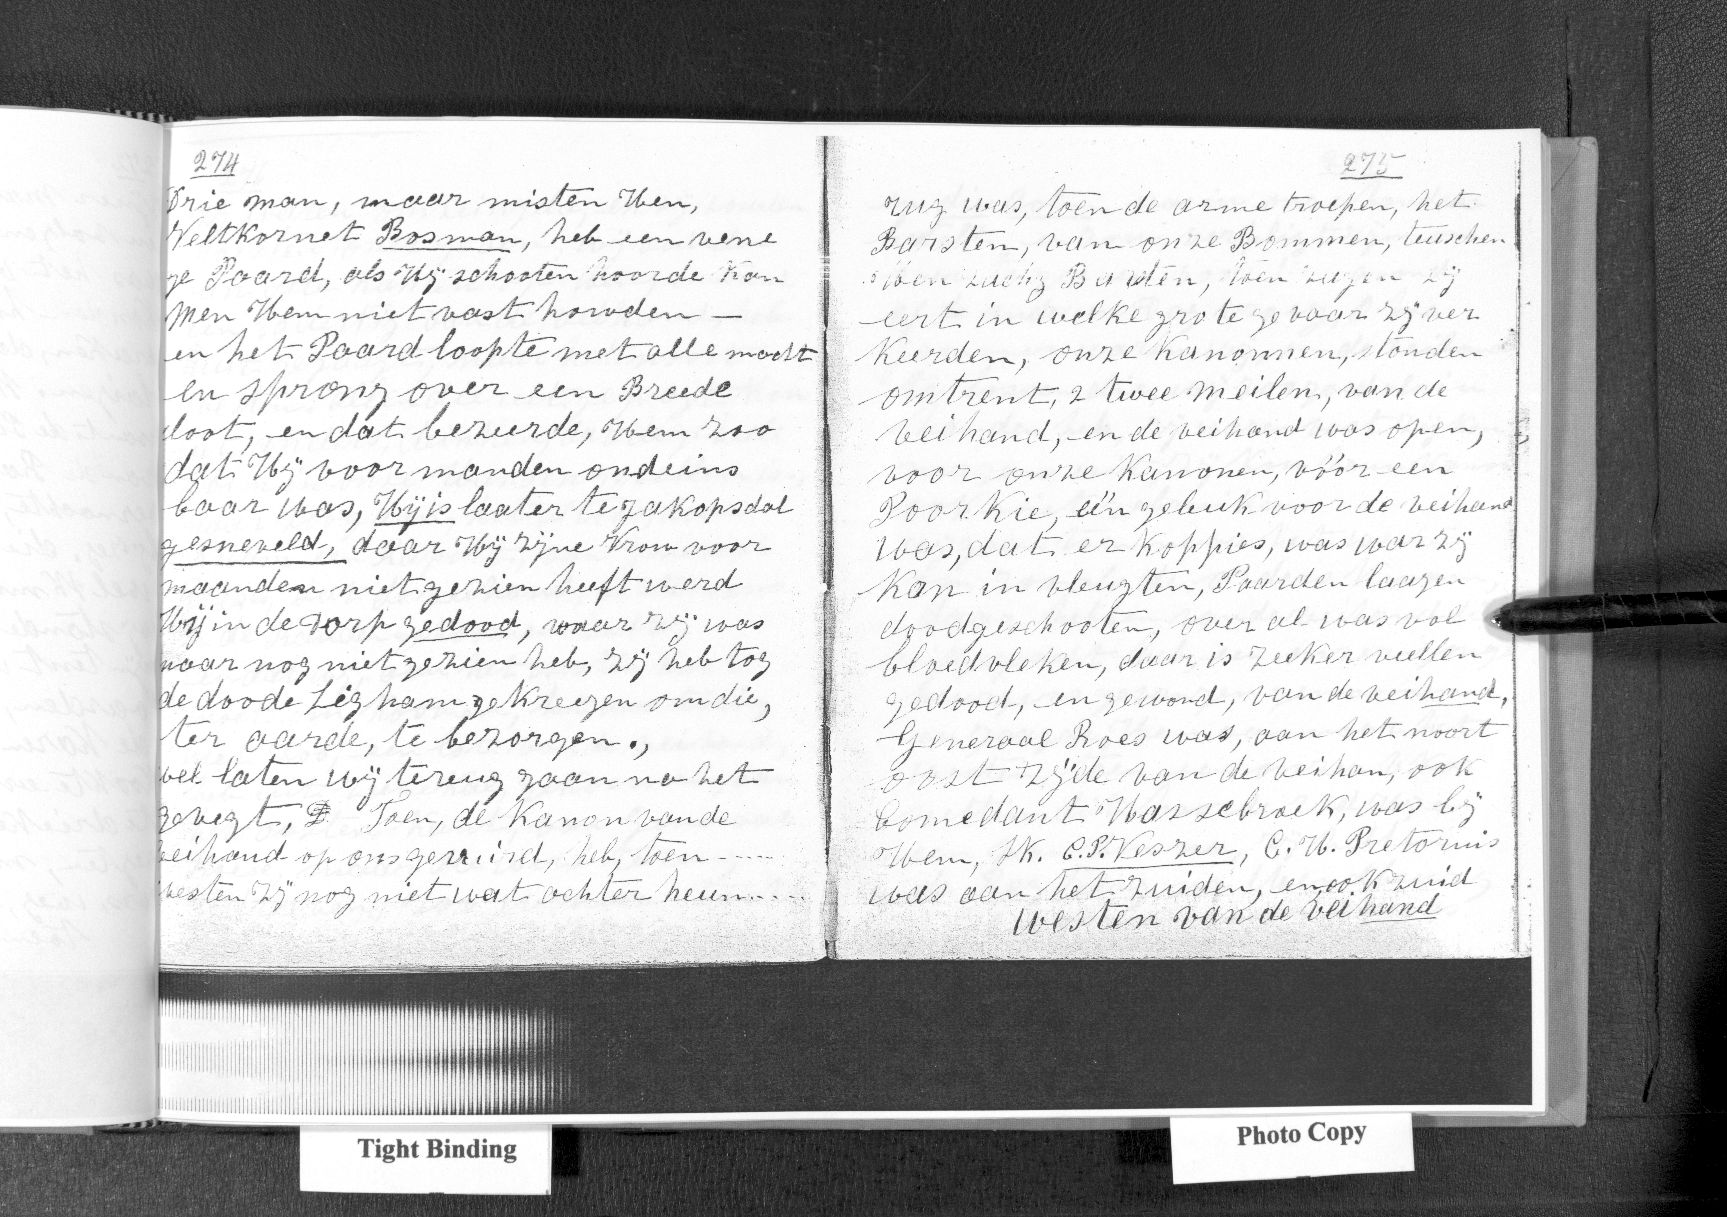 274
Drie man, maar misten Hem,
Veltkornet Bosman, heb een vene
ge Paard, als Hÿ schooten hoorde kon
men Hem niet vast houwden —
en het Paard loopte met alle macht
en sprong over een Breede
sloot, en dat bezeerde, Hem zoo
dat Hÿ voor manden ondeins
baar was, Hÿ is laater te Jakopsdal
gesneveld, daar Hÿ zÿne Vrow voor
maanden niet gezien heeft werd
Hÿ in de Dorp gedood, waar zÿ was
maar nog niet gezien heb, zÿ heb tog
de doode Ligham gekreegen om die,
ter aarde, te bezorgen.,
wel laten wÿ tereug gaan na het
gevegt, Toen, de Kanon van de
veihand op ons gerruisd, heb, toen ----
westen zÿ nog niet wat achter heun....
275
rug was, toen de arme troepen, het
Barsten, van onze Bommen, teuschen
Hen Barsten, toen zagen zÿ
eert in welke grote gevaar zÿ ver
keerden, onze Kanonnen, stonden
omtrent, 2 twee meilen, van de
veihand, en de veihand was open,
voor onze Kanonen, vóór een
Poorkie, én geluk voor de veihand
was, dat er koppies, was war zÿ
kon in vleugten, Paarden laagen
doodgeschooten, over al was vol
bloedvleken, daar is zeeker veellen
gedood, en gewond, van de veihand,
Generaal Roes was, aan het noort
oost zÿde van de veihan, ook
Comedant Hassebroek, was bÿ
Hem, Sk. C.P. Keszer, C. H. Pretorius
was aan het zuiden, en ook zuid
westen van de veihand
Tight Binding
Photo Copy